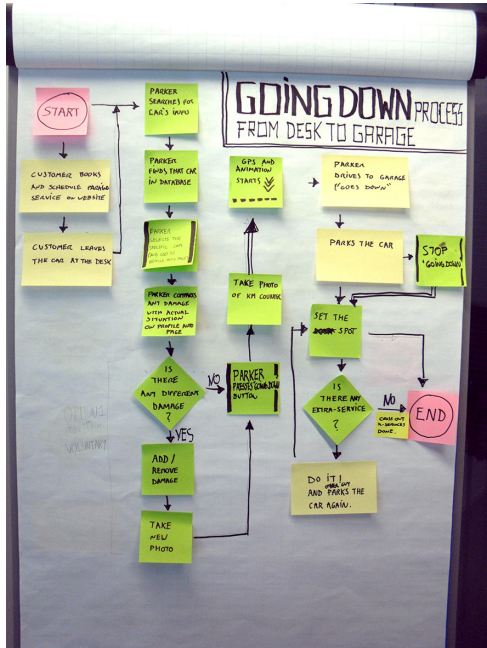 GOING DOWN PROCESS
FROM DESK TO GARAGE
START
CUSTOMER BOOKS
AND SCHEDULE
SERVICE ON WEBSITE
CUSTOMER LEAVES
THE CAR AT THE DESK
PARKER
SEARCHES FOR
CAR'S INFO
PARKER
FINDS THAT CAR
IN DATABASE
PARKER
SELECTS THE
SPECIFIC CAR
PARKER COMPARES
ANY DAMAGE
WITH ACTUAL
SITUATION
ON PROFILE AND
PAGE
IS
THERE
ANY DIFFERENT
DAMAGE
?
NO
YES
ADD /
REMOVE
DAMAGE
TAKE
NEW
PHOTO
PARKER
PRESSES "GOING DOWN"
BUTTON
TAKE PHOTO
OF KM COUNTER
GPS AND
ANIMATION
STARTS
PARKER
DRIVES TO GARAGE
("GOES DOWN")
PARKS THE CAR
STOP
"GOING DOWN"
SET THE
SPOT
IS
THERE ANY
EXTRA-SERVICE
?
NO
DONE.
END
DO IT!
AND PARKS THE
CAR AGAIN.